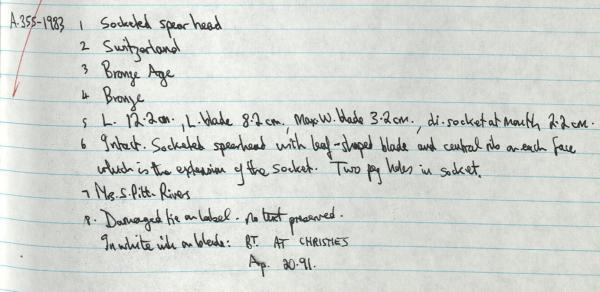 A.355-1983 1 Socketed spear head
2 Switzerland
3 Bronze Age
4 Bronze
5 L. 12.2cm., L. blade 8.2cm, Max W. blade 3.2cm., di. socket at mouth 2.2cm.
6 Intact. Socketed spearhead with leaf-shaped blade and central rib on each face
which is the extension of the socket. Two peg holes in socket.
7 Mrs. S. Pitt-Rivers
8. Damaged tie on label. no text preserved.
In white ink on blade: BT. AT CHRISTIES
Ap. 20.91.